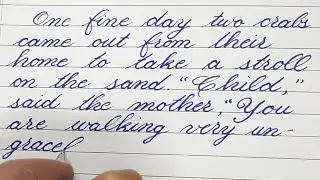 One fine day two crabs
came out from their
home to take a stroll
on the sand. "Child,"
said the mother, "You
are walking very un-
gracef